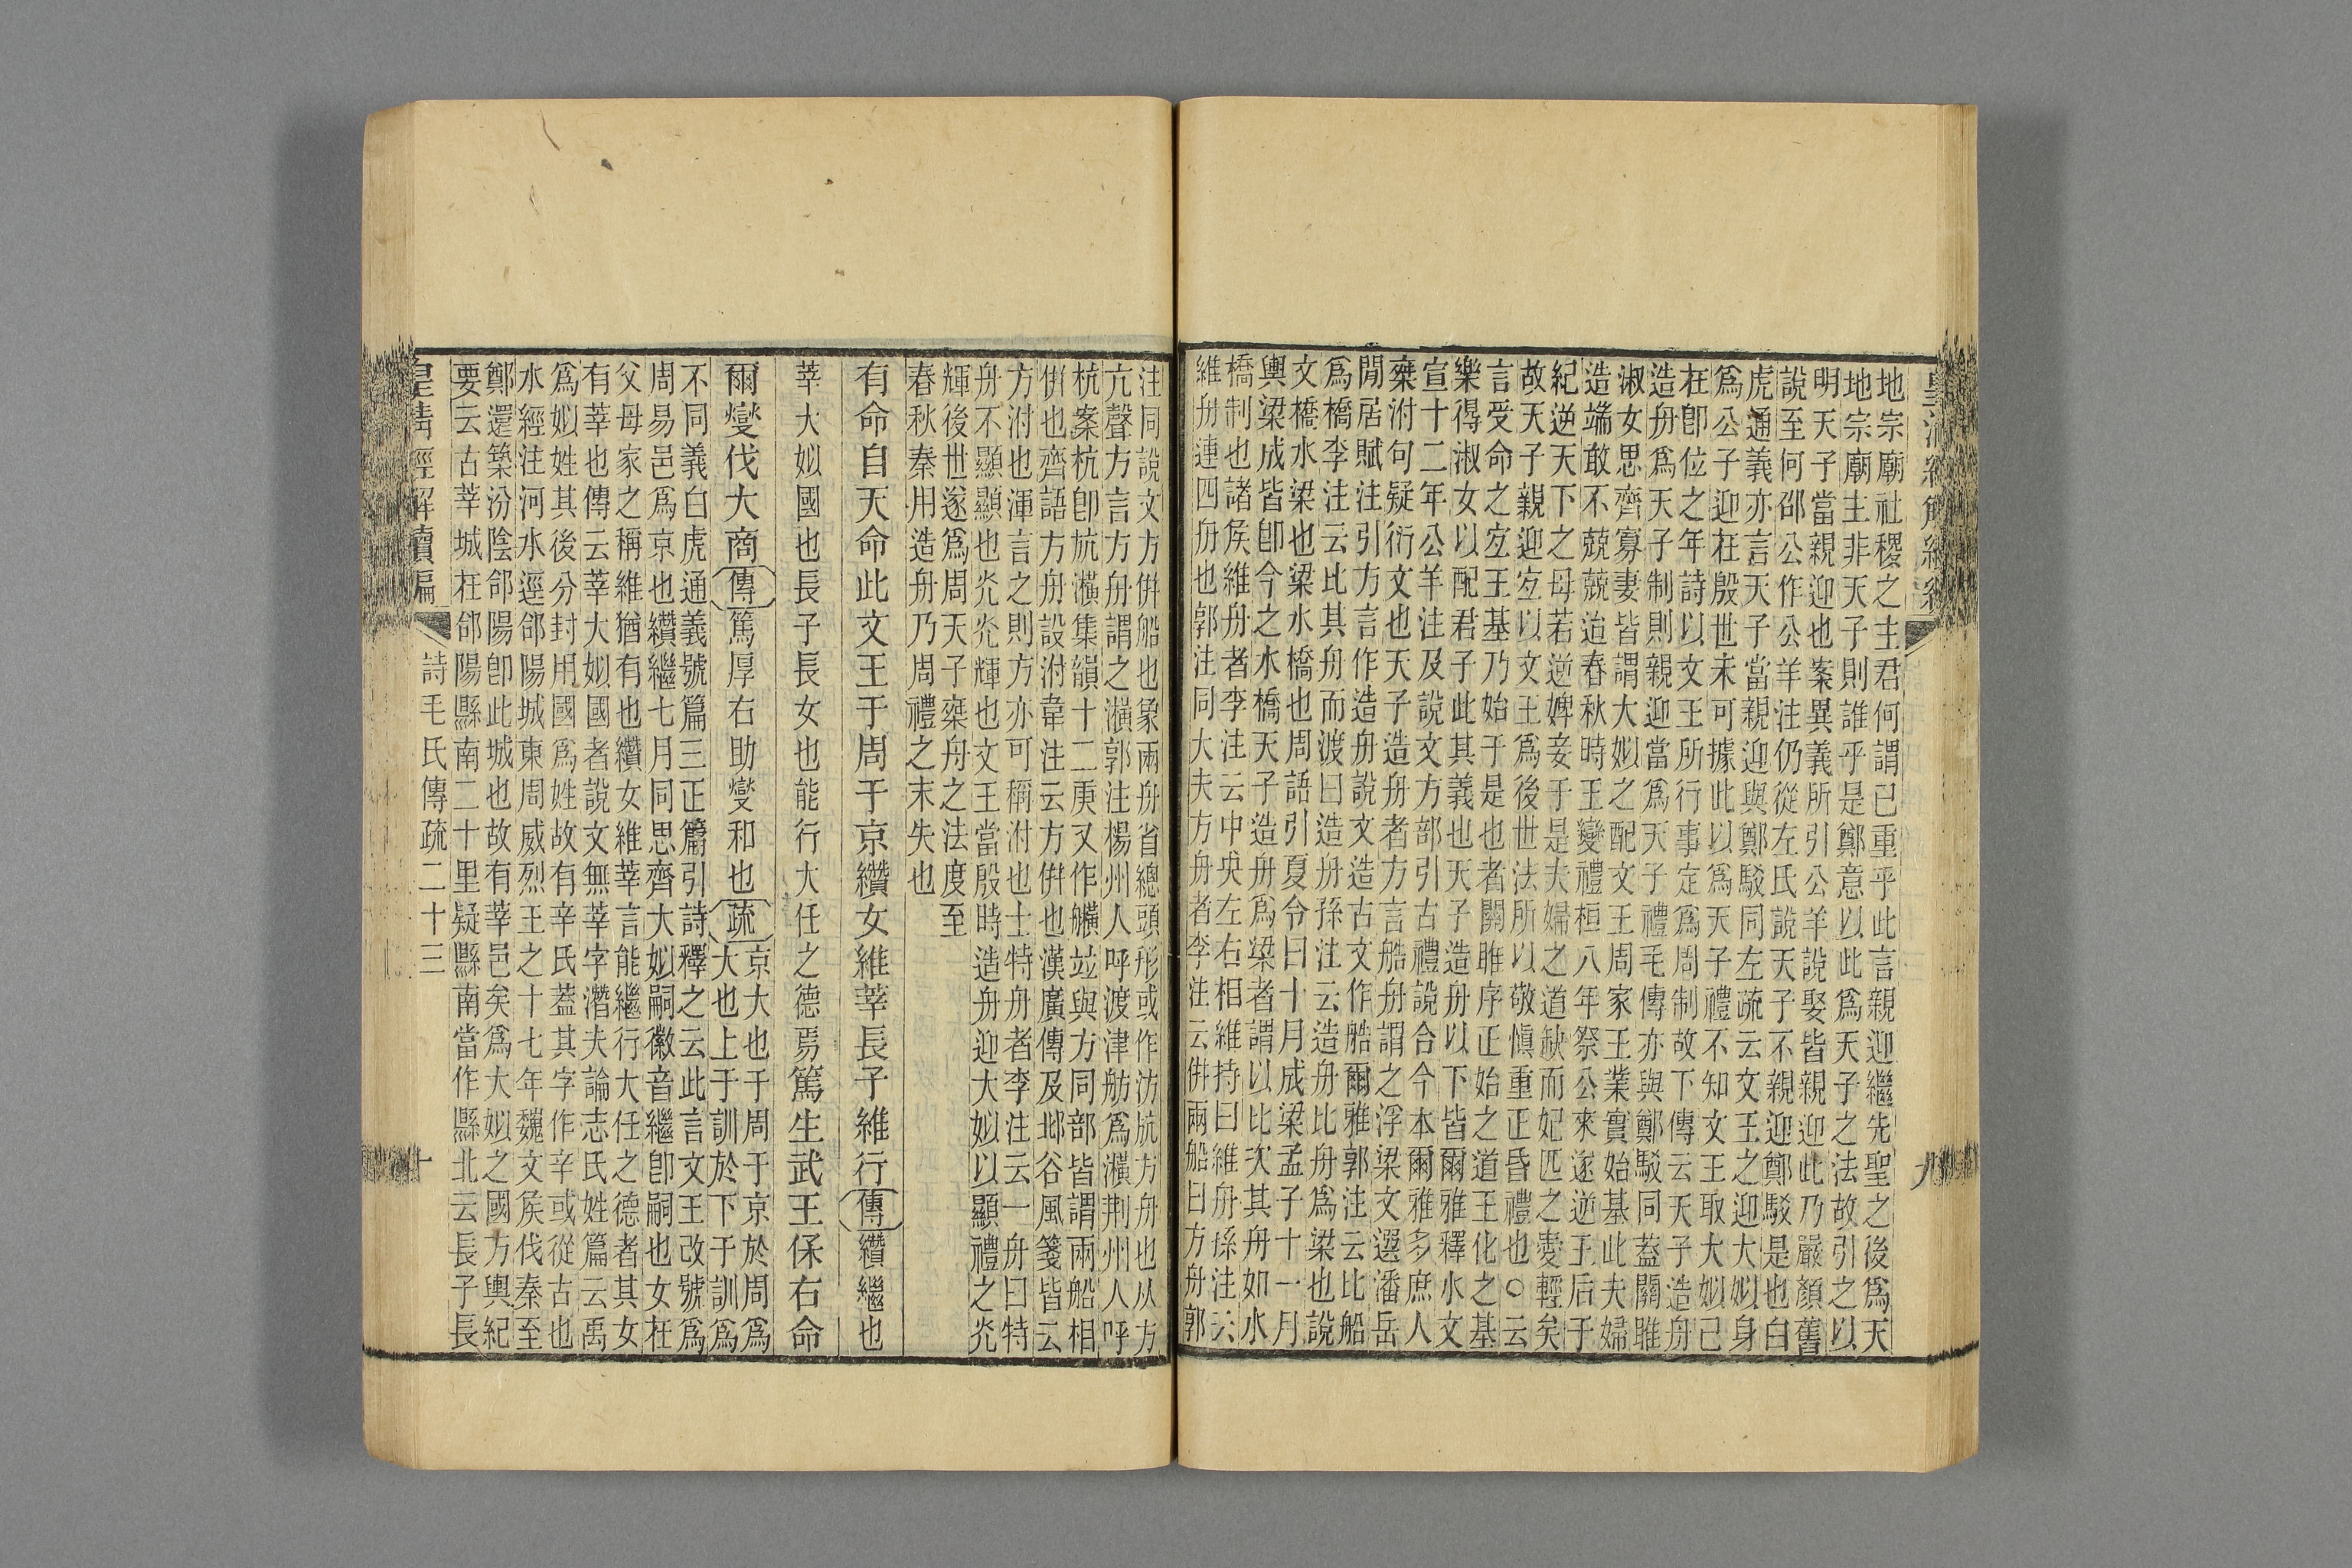 地宗廟社稷之主君何謂已重乎此言親迎繼先聖之後爲天
地宗廟主非天子則誰乎是鄭意以此爲天子之法故引之以
明天子當親迎也案異義所引公羊說娶皆親迎此乃嚴顏舊
說至何邵公作公羊注仍從左氏說天子不親迎鄭駁是也白
虎通義亦言天子當親迎與鄭駁同左疏云文王之迎大姒身
爲公子迎在殷世未可據此以爲天子禮不知文王取大姒已
在卽位之年詩以文王所行事定爲周制故下傳云天子造舟
造舟爲天子制則親迎當爲天子禮毛傳亦與鄭駁同蓋關雎
淑女思齊寡妻皆謂大姒之配文王周家王業實始基此夫婦
造端敢不兢兢迨春秋時王變禮桓八年祭公來遂逆王后于
紀逆天下之母若逆婢妾于是夫婦之道缺而妃匹之愛輕矣
故天子親迎㝎以文王爲後世法所以敬愼重正昏禮也○云
言受命之㝎王基乃始于是也者關雎序正始之道王化之基
樂得淑女以配君子此其義也天子造舟以下皆爾雅釋水文
宣十二年公羊注及說文方部引古禮說合今本爾雅多庶人
椉泭句疑衍文也天子造舟者方言艁舟謂之浮梁文選潘岳
閒居賦注引方言作造舟說文造古文作艁爾雅郭注云比船
爲橋李注云比其舟而渡曰造舟孫注云造舟比舟爲梁也說
文橋水梁也梁水橋也周語引夏令曰十月成梁孟子十一月
輿梁成皆卽今之水橋天子造舟爲梁者謂以比次其舟如水
橋制也諸矦維舟者李注云中央左右相維持曰維舟孫注云
維舟連四舟也郭注同大夫方舟者李注云倂兩船曰方舟郭
九
注同說文方倂船也象兩舟省總頭形或作汸䒀方舟也从方
亢聲方言方舟謂之㶇郭注楊州人呼渡津舫爲㶇荆州人呼
杭案杭卽䒀㶇集韻十二庚又作艕竝與方同部皆謂兩船相
倂也齊語方舟設泭韋注云方倂也漢廣傳及邶谷風箋皆云
方泭也渾言之則方亦可稱泭也士特舟者李注云一舟曰特
舟不顯顯也灮灮輝也文王當殷時造舟迎大姒以顯禮之灮
輝後世遂爲周天子椉舟之法度至
春秋秦用造舟乃周禮之末失也
有命自天命此文王于周于京纘女維莘長子維行傳纘繼也
莘大姒國也長子長女也能行大任之德焉篤生武王保右命
爾燮伐大商傳篤厚右助燮和也疏京大也于周于京於周爲
大也上于訓於下于訓爲
不同義白虎通義號篇三正篇引詩釋之云此言文王改號爲
周易邑爲京也纘繼七月同思齊大姒嗣徽音繼卽嗣也女在
父母家之稱維猶有也纘女維莘言能繼行大任之德者其女
有莘也傳云莘大姒國者說文無莘字潛夫論志氏姓篇云禹
爲姒姓其後分封用國爲姓故有辛氏蓋其字作辛或從古也
水經注河水逕郃陽城東周威烈王之十七年魏文矦伐秦至
鄭還築汾陰郃陽卽此城也故有莘邑矣爲大姒之國方輿紀
要云古莘城在郃陽縣南二十里疑縣南當作縣北云長子長
皇淸經解續編
詩毛氏傳疏二十三
十